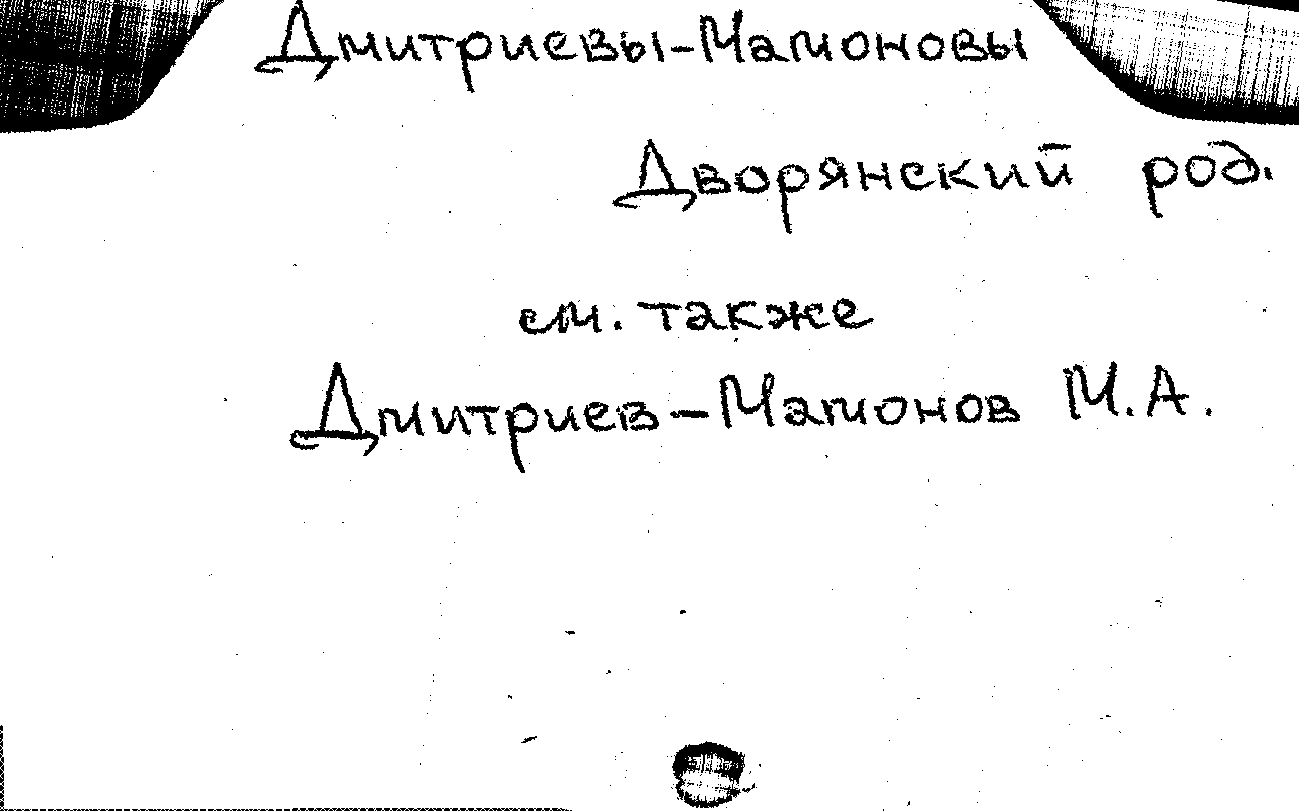 Дмитриевы-Мамоновы
Дворянский род.
см. также
Дмитриев-Мамонов М.А.